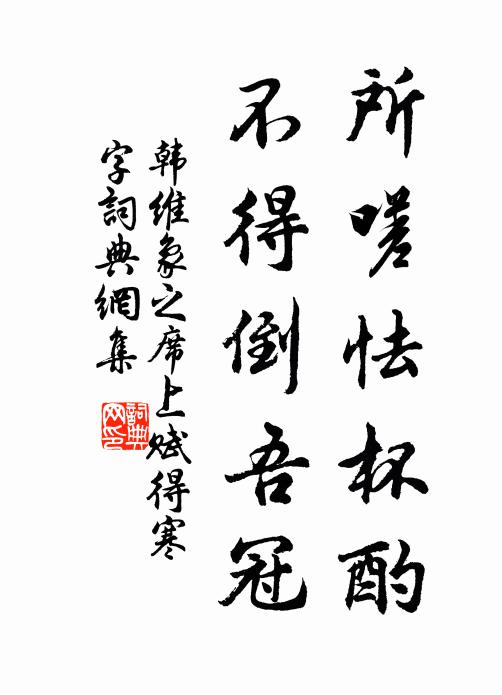 所嗟怯杯酌
不得倒吾冠
韩维象之席上赋得寒
字詞典網集
詞典网印